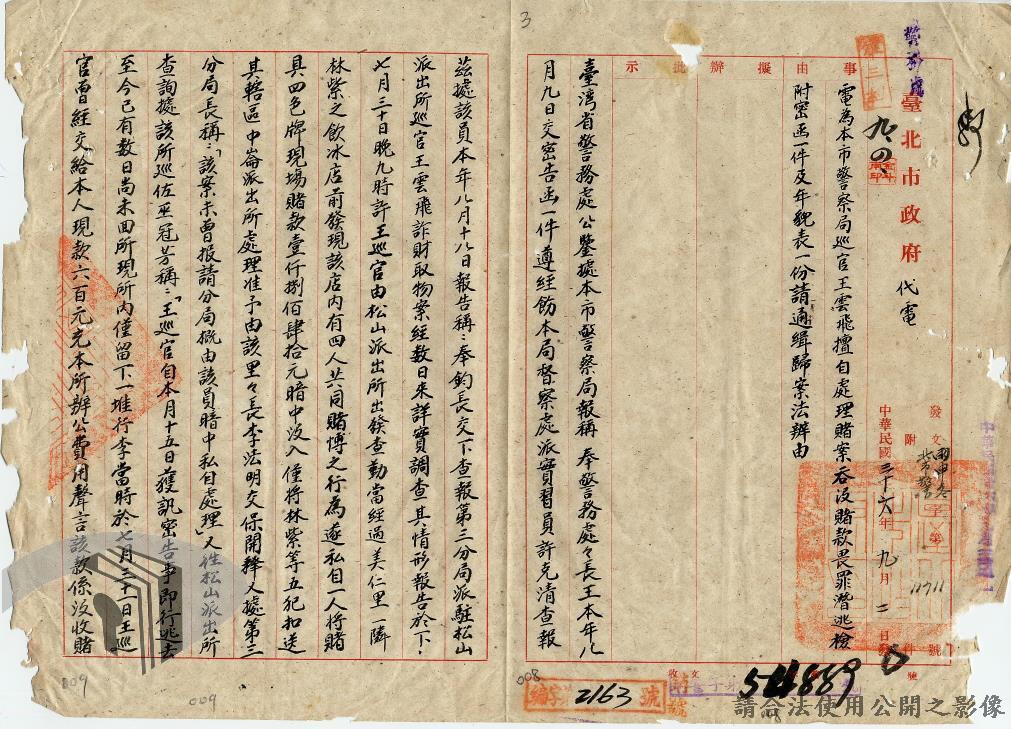 臺北市政府代電
中華民國三十六年九月二日發
事由
擬辦
批示
電為本市警察局巡官王雲飛擅自處理賭案吞沒賭款畏罪潛逃檢
附密函一件及年貌表一份請通緝歸案法辦由
臺灣省警務處公鑒據本市警察局報稱奉警務處々長王本年八
月九日交密告函一件遵經飭本局督察處派實習員許克清查報
茲據該員本年八月十八日報告稱：奉鈞長交下查報第三分局派駐松山
派出所巡官王雲飛詐財取物案經數日來詳實調查其情形報告於下：
七月三十日晚九時許王巡官由松山派出所出發查勤當經過美仁里一隣
林紫之飲冰店前發現該店內有四人共同賭博之行為遂私自一人將賭
具四色牌現場賭款壹仟捌佰肆拾元暗中沒入僅將林紫等五犯扣送
其轄區中崙派出所處理准予由該里々長李法明交保開釋又據第三
分局長稱：「該案未曾報請分局概由該員暗中私自處理」又往松山派出所
查詢據該所巡佐巫冠芳稱：「王巡官自本月十五日獲訊密告事即行逃去
至今已有數日尚未回所現所內僅留下一堆行李當時於七月三十一日王巡
官曾經交給本人現款六百元充本所辦公費用聲言該款係沒收賭
發文
附件
字第11711號
收文
字第
54889
號
2163號
3
008
009
009
請合法使用公開之影像